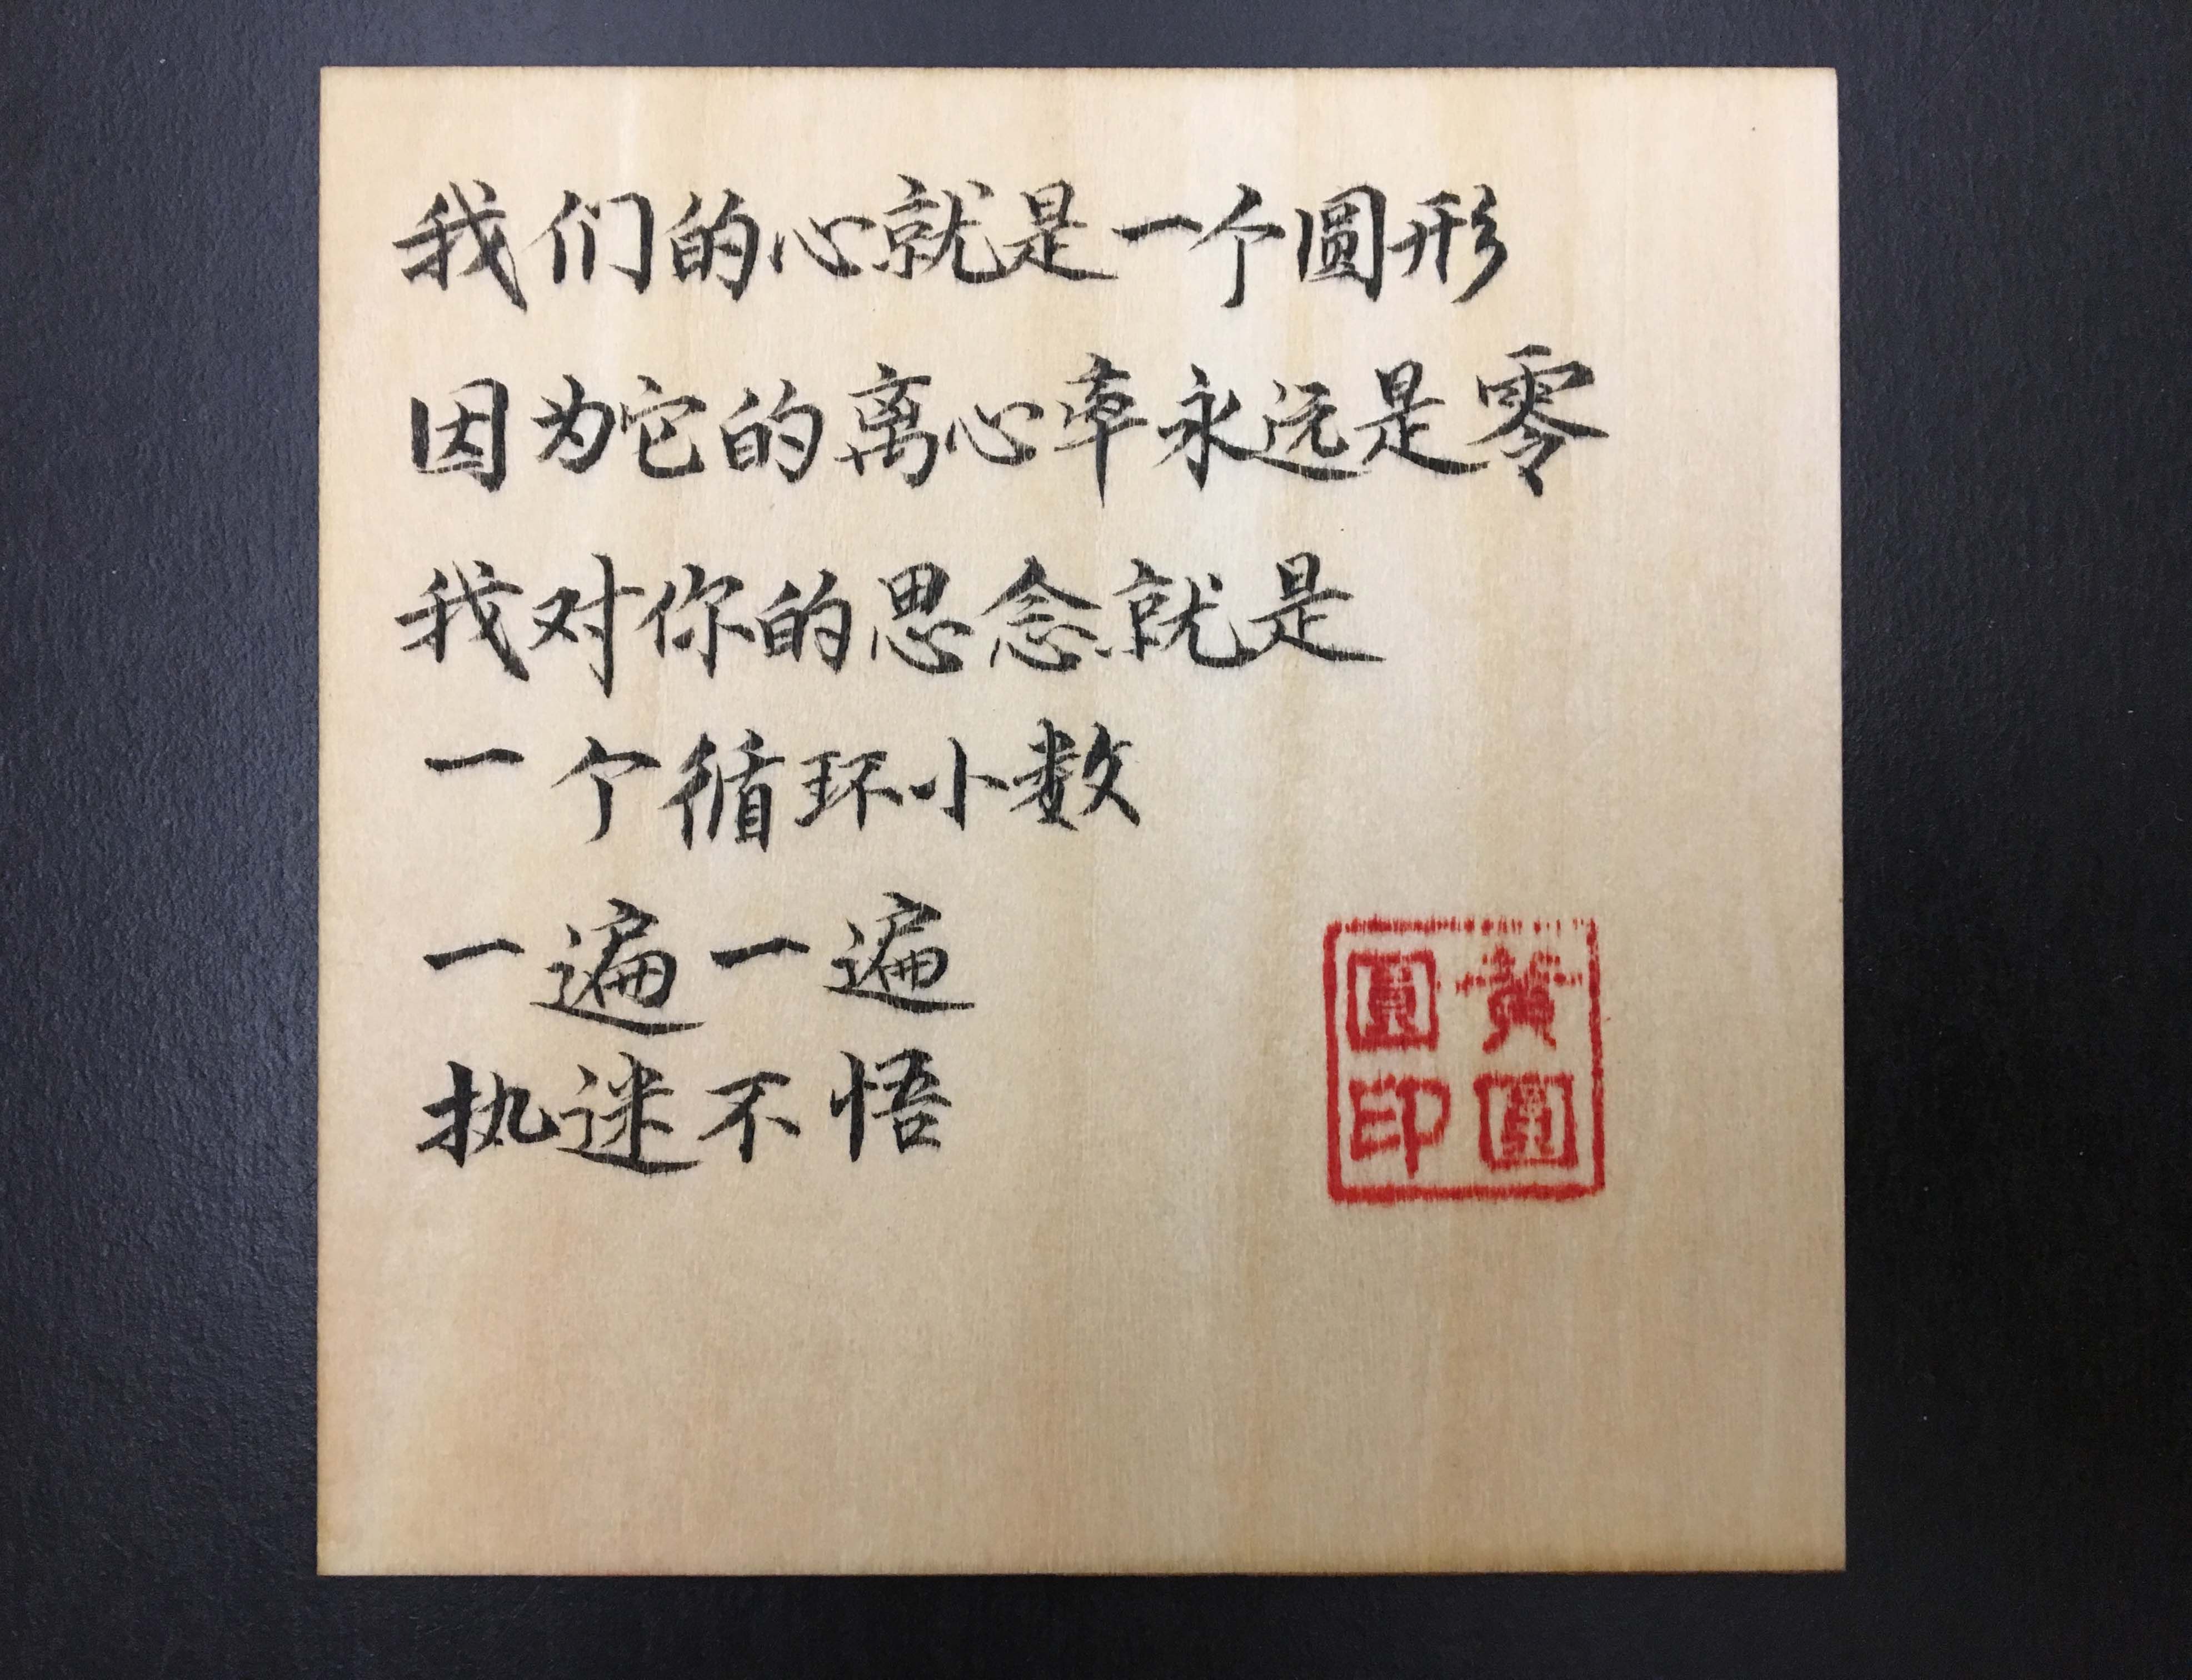 我们的心就是一个圆形
因为它的离心率永远是零
我对你的思念就是
一个循环小数
一遍一遍
执迷不悟
黄圆
圆印